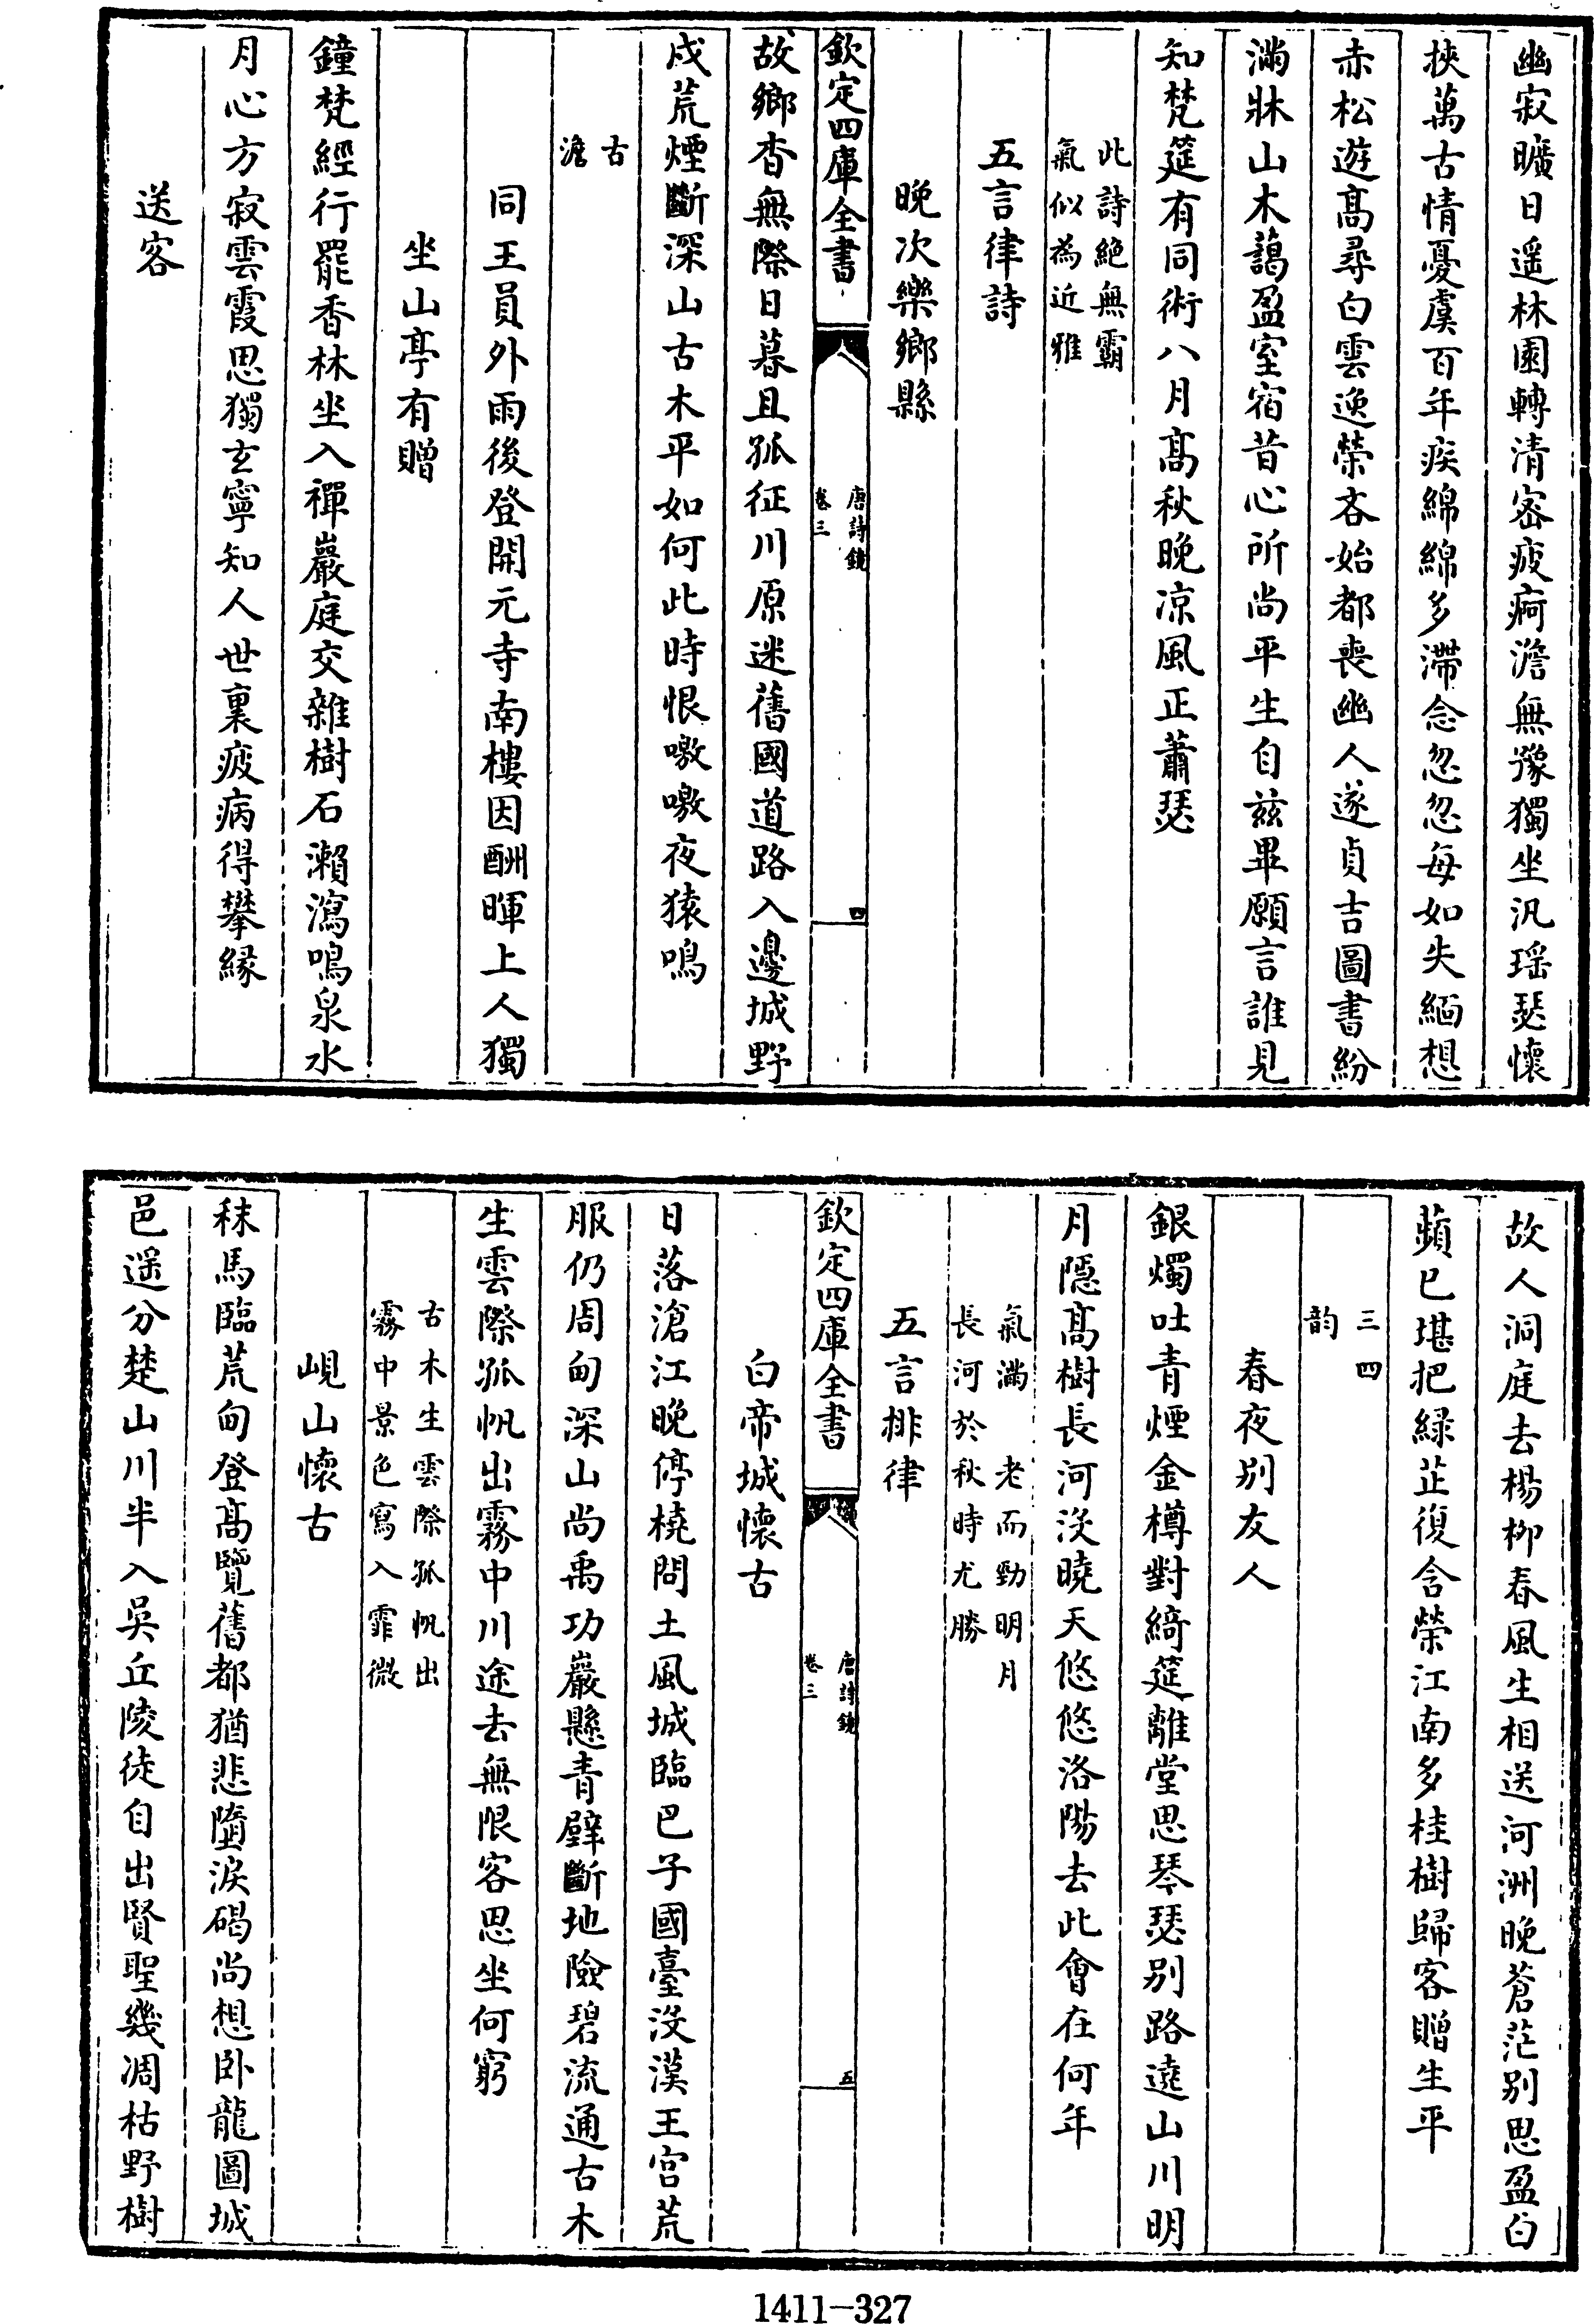 幽寂曠日遥林園轉清密疲痾澹無豫獨坐汎瑶瑟懷
挾萬古情憂虞百年疾綿綿多滯念忽忽每如失緬想
赤松遊髙尋白雲逸榮吝始都喪幽人遂貞吉圖書紛
滿牀山木藹盈室宿昔心所尚平生自兹畢願言誰見
知梵筵有同術八月髙秋晚凉風正蕭瑟
此詩絶無霸
氣似為近雅
五言律詩
晚次樂鄉縣
欽定四庫全書
唐詩鏡
卷三
四
故鄉杳無際日暮且孤征川原迷舊國道路入邊城野
戍荒煙斷深山古木平如何此時恨噭噭夜猿鳴
古
澹
同王員外雨後登開元寺南樓因酬暉上人獨
坐山亭有贈
鐘梵經行罷香林坐入禪巖庭交雜樹石瀨瀉鳴泉水
月心方寂雲霞思獨玄寧知人世裏疲病得攀縁
送客
故人洞庭去楊柳春風生相送河洲晚蒼茫别思盈白
蘋已堪把緑芷復含榮江南多桂樹歸客贈生平
三四
韵
春夜别友人
銀燭吐青煙金樽對綺筵離堂思琴瑟别路遶山川明
月隱髙樹長河没曉天悠悠洛陽去此會在何年
氣滿　老而勁明月
長河於秋時尤勝
五言排律
欽定四庫全書
唐詩鏡
卷三
五
白帝城懷古
日落滄江晚停橈問土風城臨巴子國臺没漢王宫荒
服仍周甸深山尚禹功巖懸青壁斷地險碧流通古木
生雲際孤帆出霧中川途去無限客思坐何窮
古木生雲際孤帆出
霧中景色寫入霏微
峴山懷古
秣馬臨荒甸登髙覽舊都猶悲墮淚碣尚想卧龍圖城
邑遥分楚山川半入吳丘陵徒自出賢聖幾凋枯野樹
1411—327